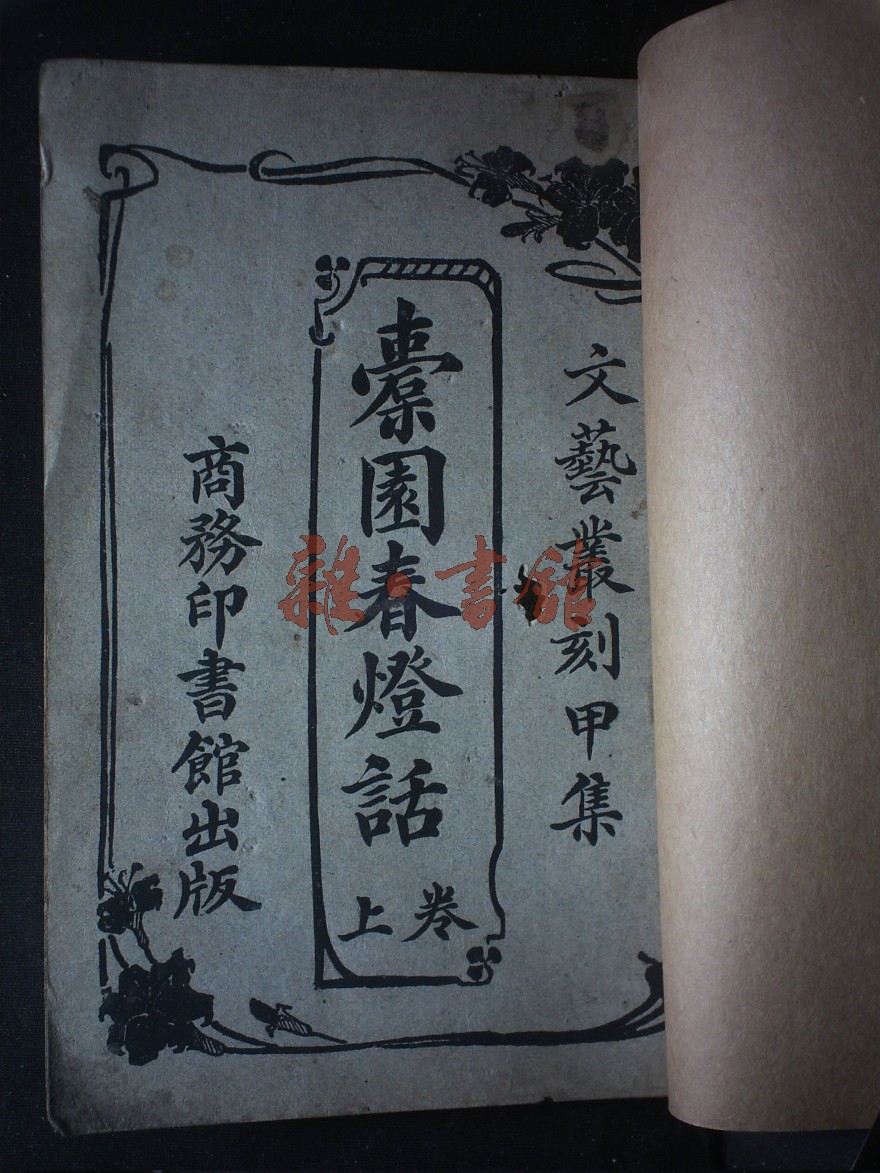 文藝叢刻甲集
橐園春燈話
卷上
商務印書館出版
雜·書館